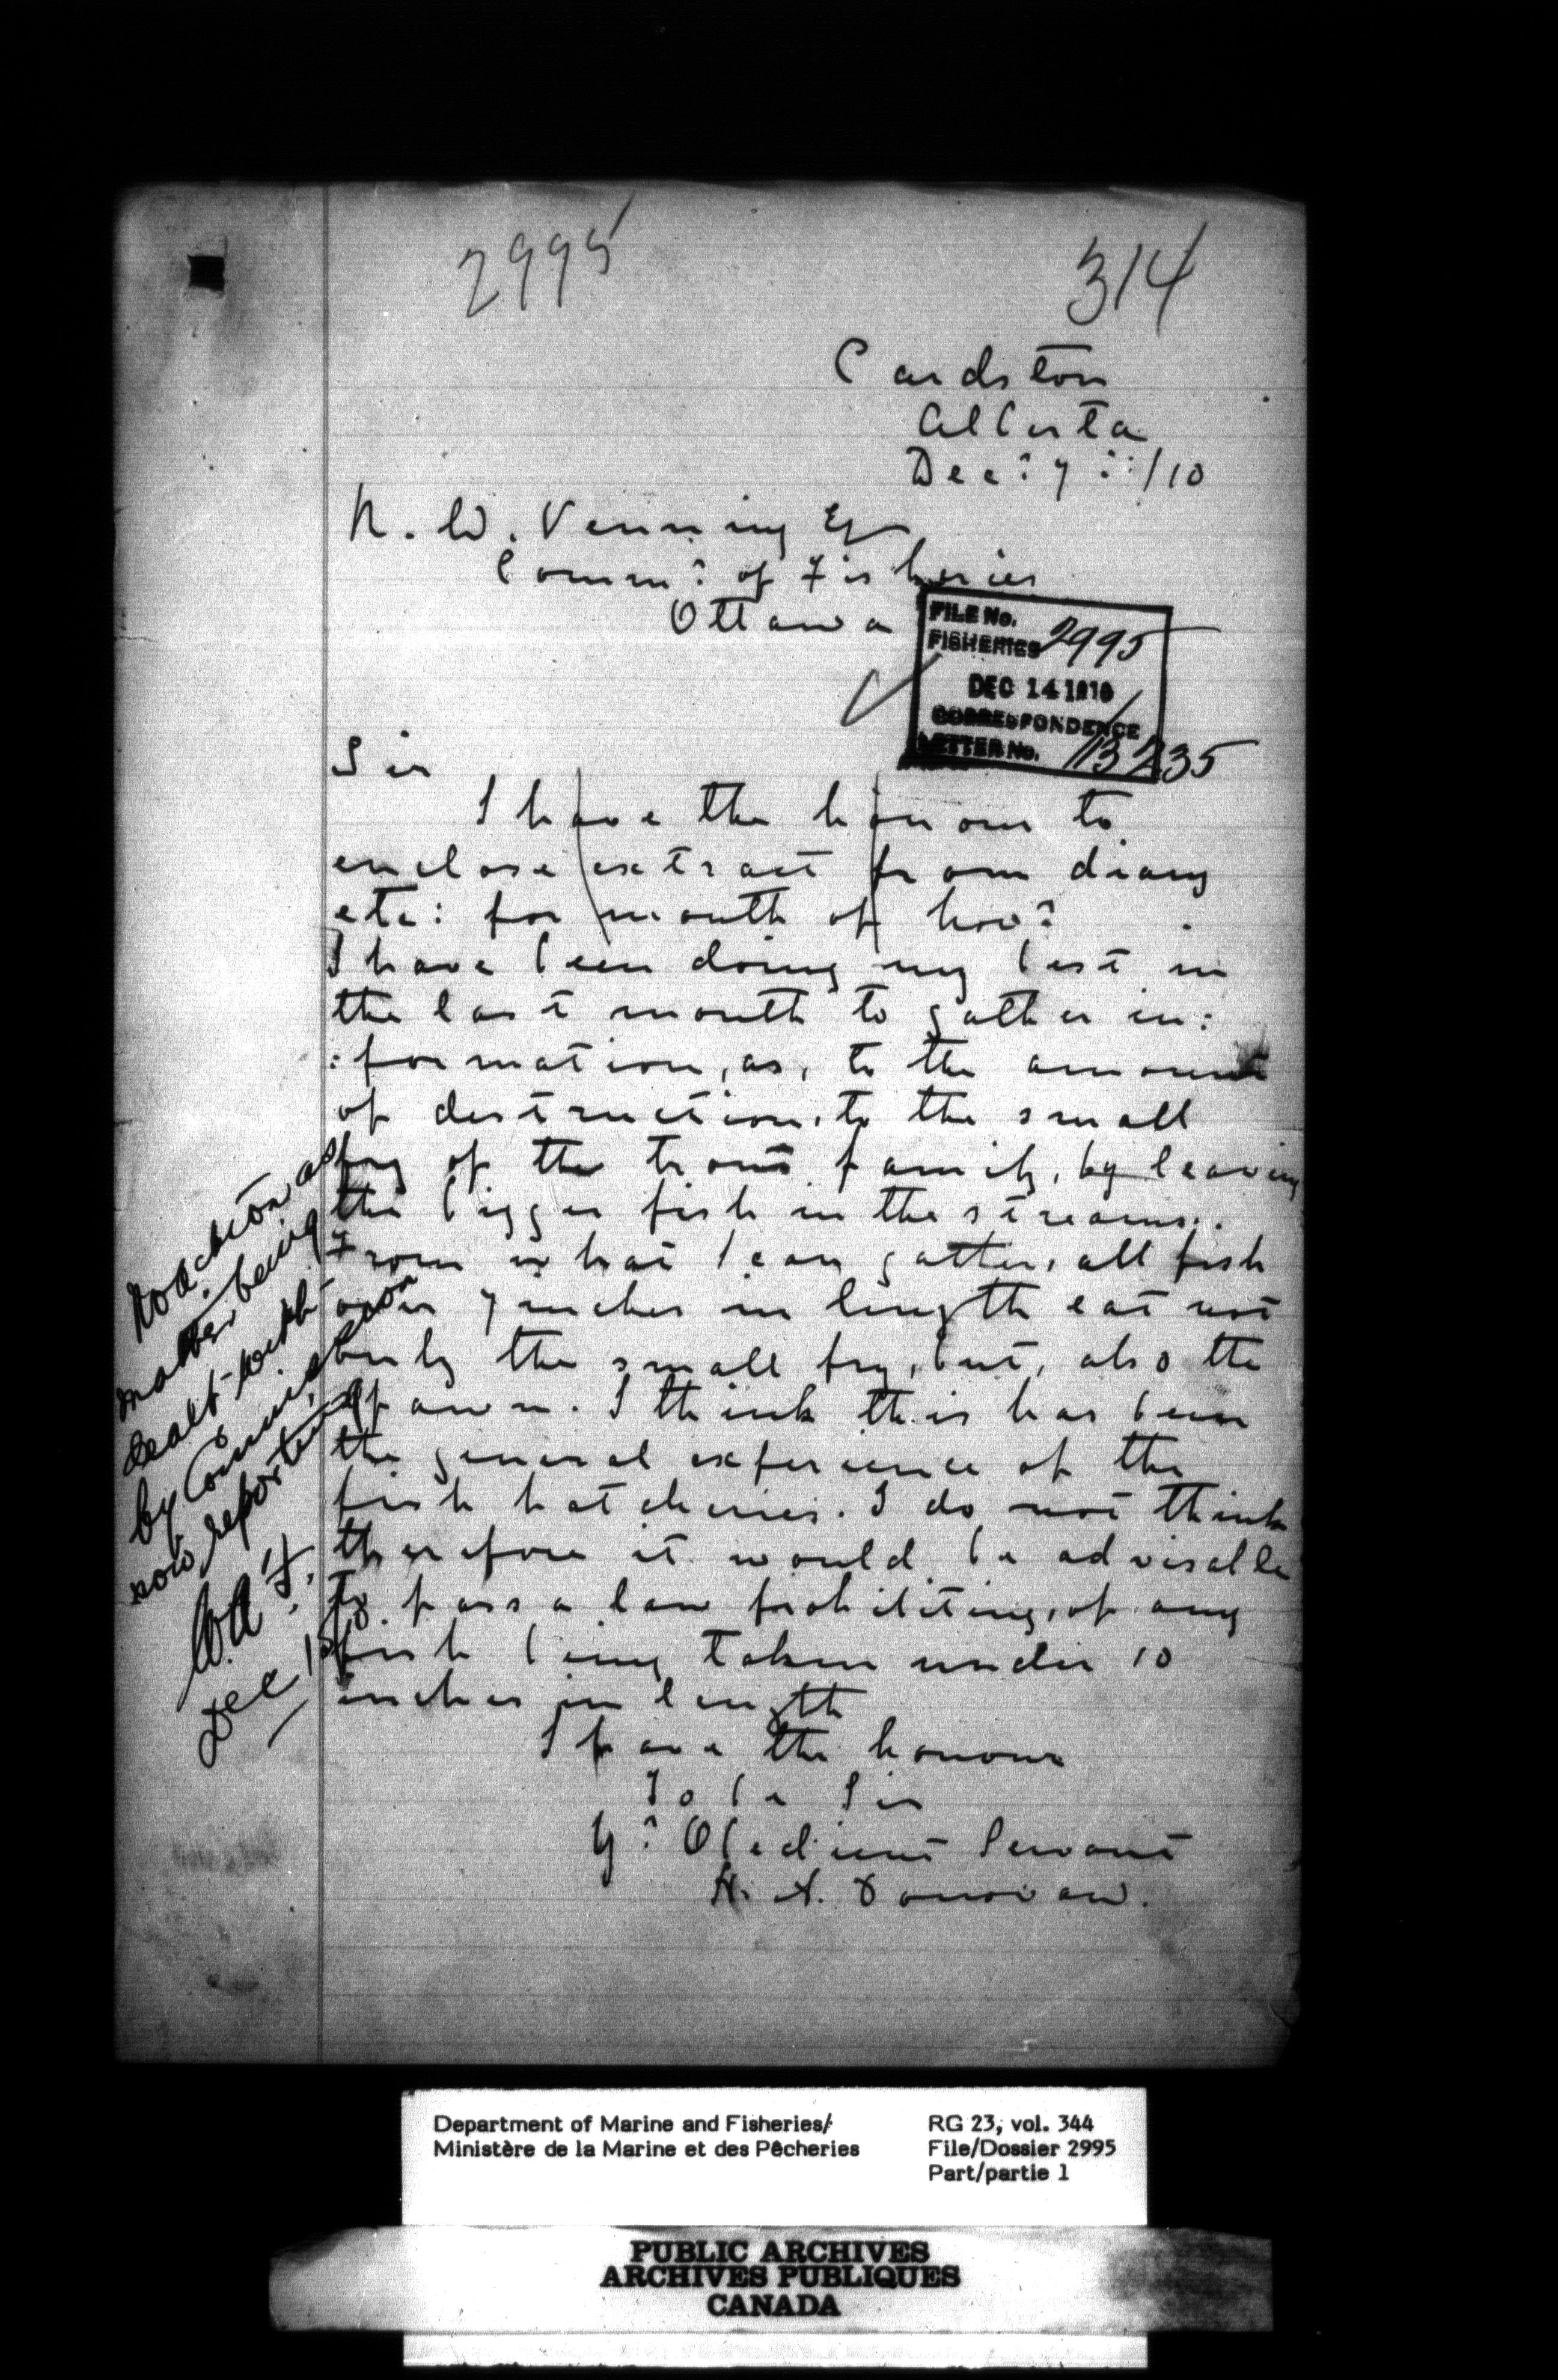 2995
314
Cardston
Alberta
Dec: 7: /10
R. W. Venning Esq
Comm: of Fisheries
Ottawa
FILE No.
FISHERIES 2995
DEC 14 1910
CORRESPONDENCE
LETTER No. 113235
Sir
I have the honour to
enclose extract from diary
etc: for month of Nov:
I have been doing my best in
the last month to gather in:
:formation, as, to the amount
of destruction, to the small
fry of the trout family, by leaving
the bigger fish in the streams.
From what I can gather, all fish
over 7 inches in length eat not
only the small fry, but, also the
spawn. I think this has been
the general experience of the
fish hatcheries. I do not think
therefore it would be advisable
to pass a law prohibiting, of any
fish being taken under 10
inches in length
I have the honour
To be Sir
Yr: Obedient Servant
H. A. Donovan.
No action as
matter being
dealt with
by Commission
now reporting
W.A.F.
Dec 15/10
Department of Marine and Fisheries/
Ministère de la Marine et des Pêcheries
RG 23, vol. 344
File/Dossier 2995
Part/partie 1
PUBLIC ARCHIVES
ARCHIVES PUBLIQUES
CANADA